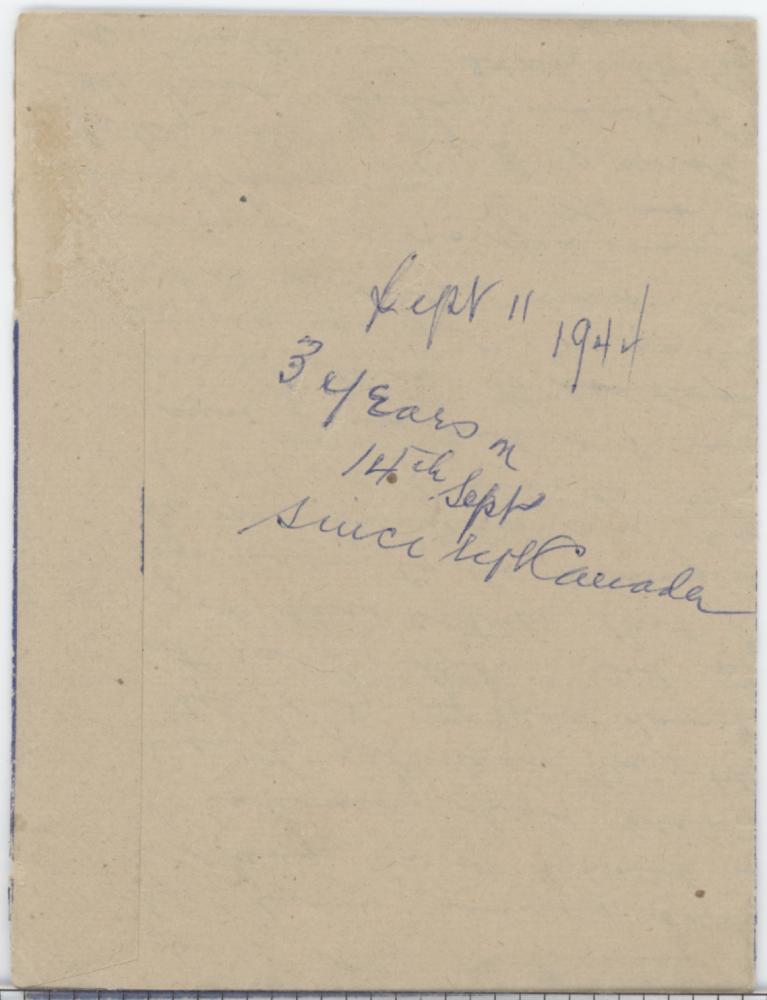 Sept 11
1944
3 years on
14th Sept
since left Canada